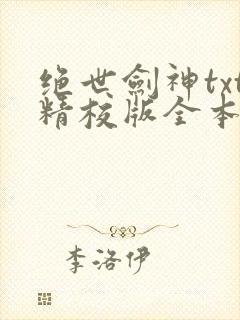 绝世劍神txt
精校版全本
李洛伊